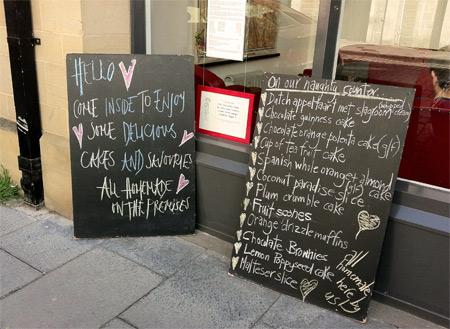 HELLO
COME INSIDE TO ENJOY
SOME DELICIOUS
CAKES AND SAVOURIES
ALL HOMEMADE
ON THE PREMISES
On our naughty counter...
Dutch appeltaart met slagroom
Chocolate guinness cake
Chocolate orange polenta cake (g/f)
Cup of tea fruit cake
Spanish white orange almond
Coconut paradise slice (g/f) cake
Plum crumble cake
Fruit scones
Orange drizzle muffins
Chocolate Brownies
Lemon Poppyseed cake
Malteser slice
all
homemade
here by
us